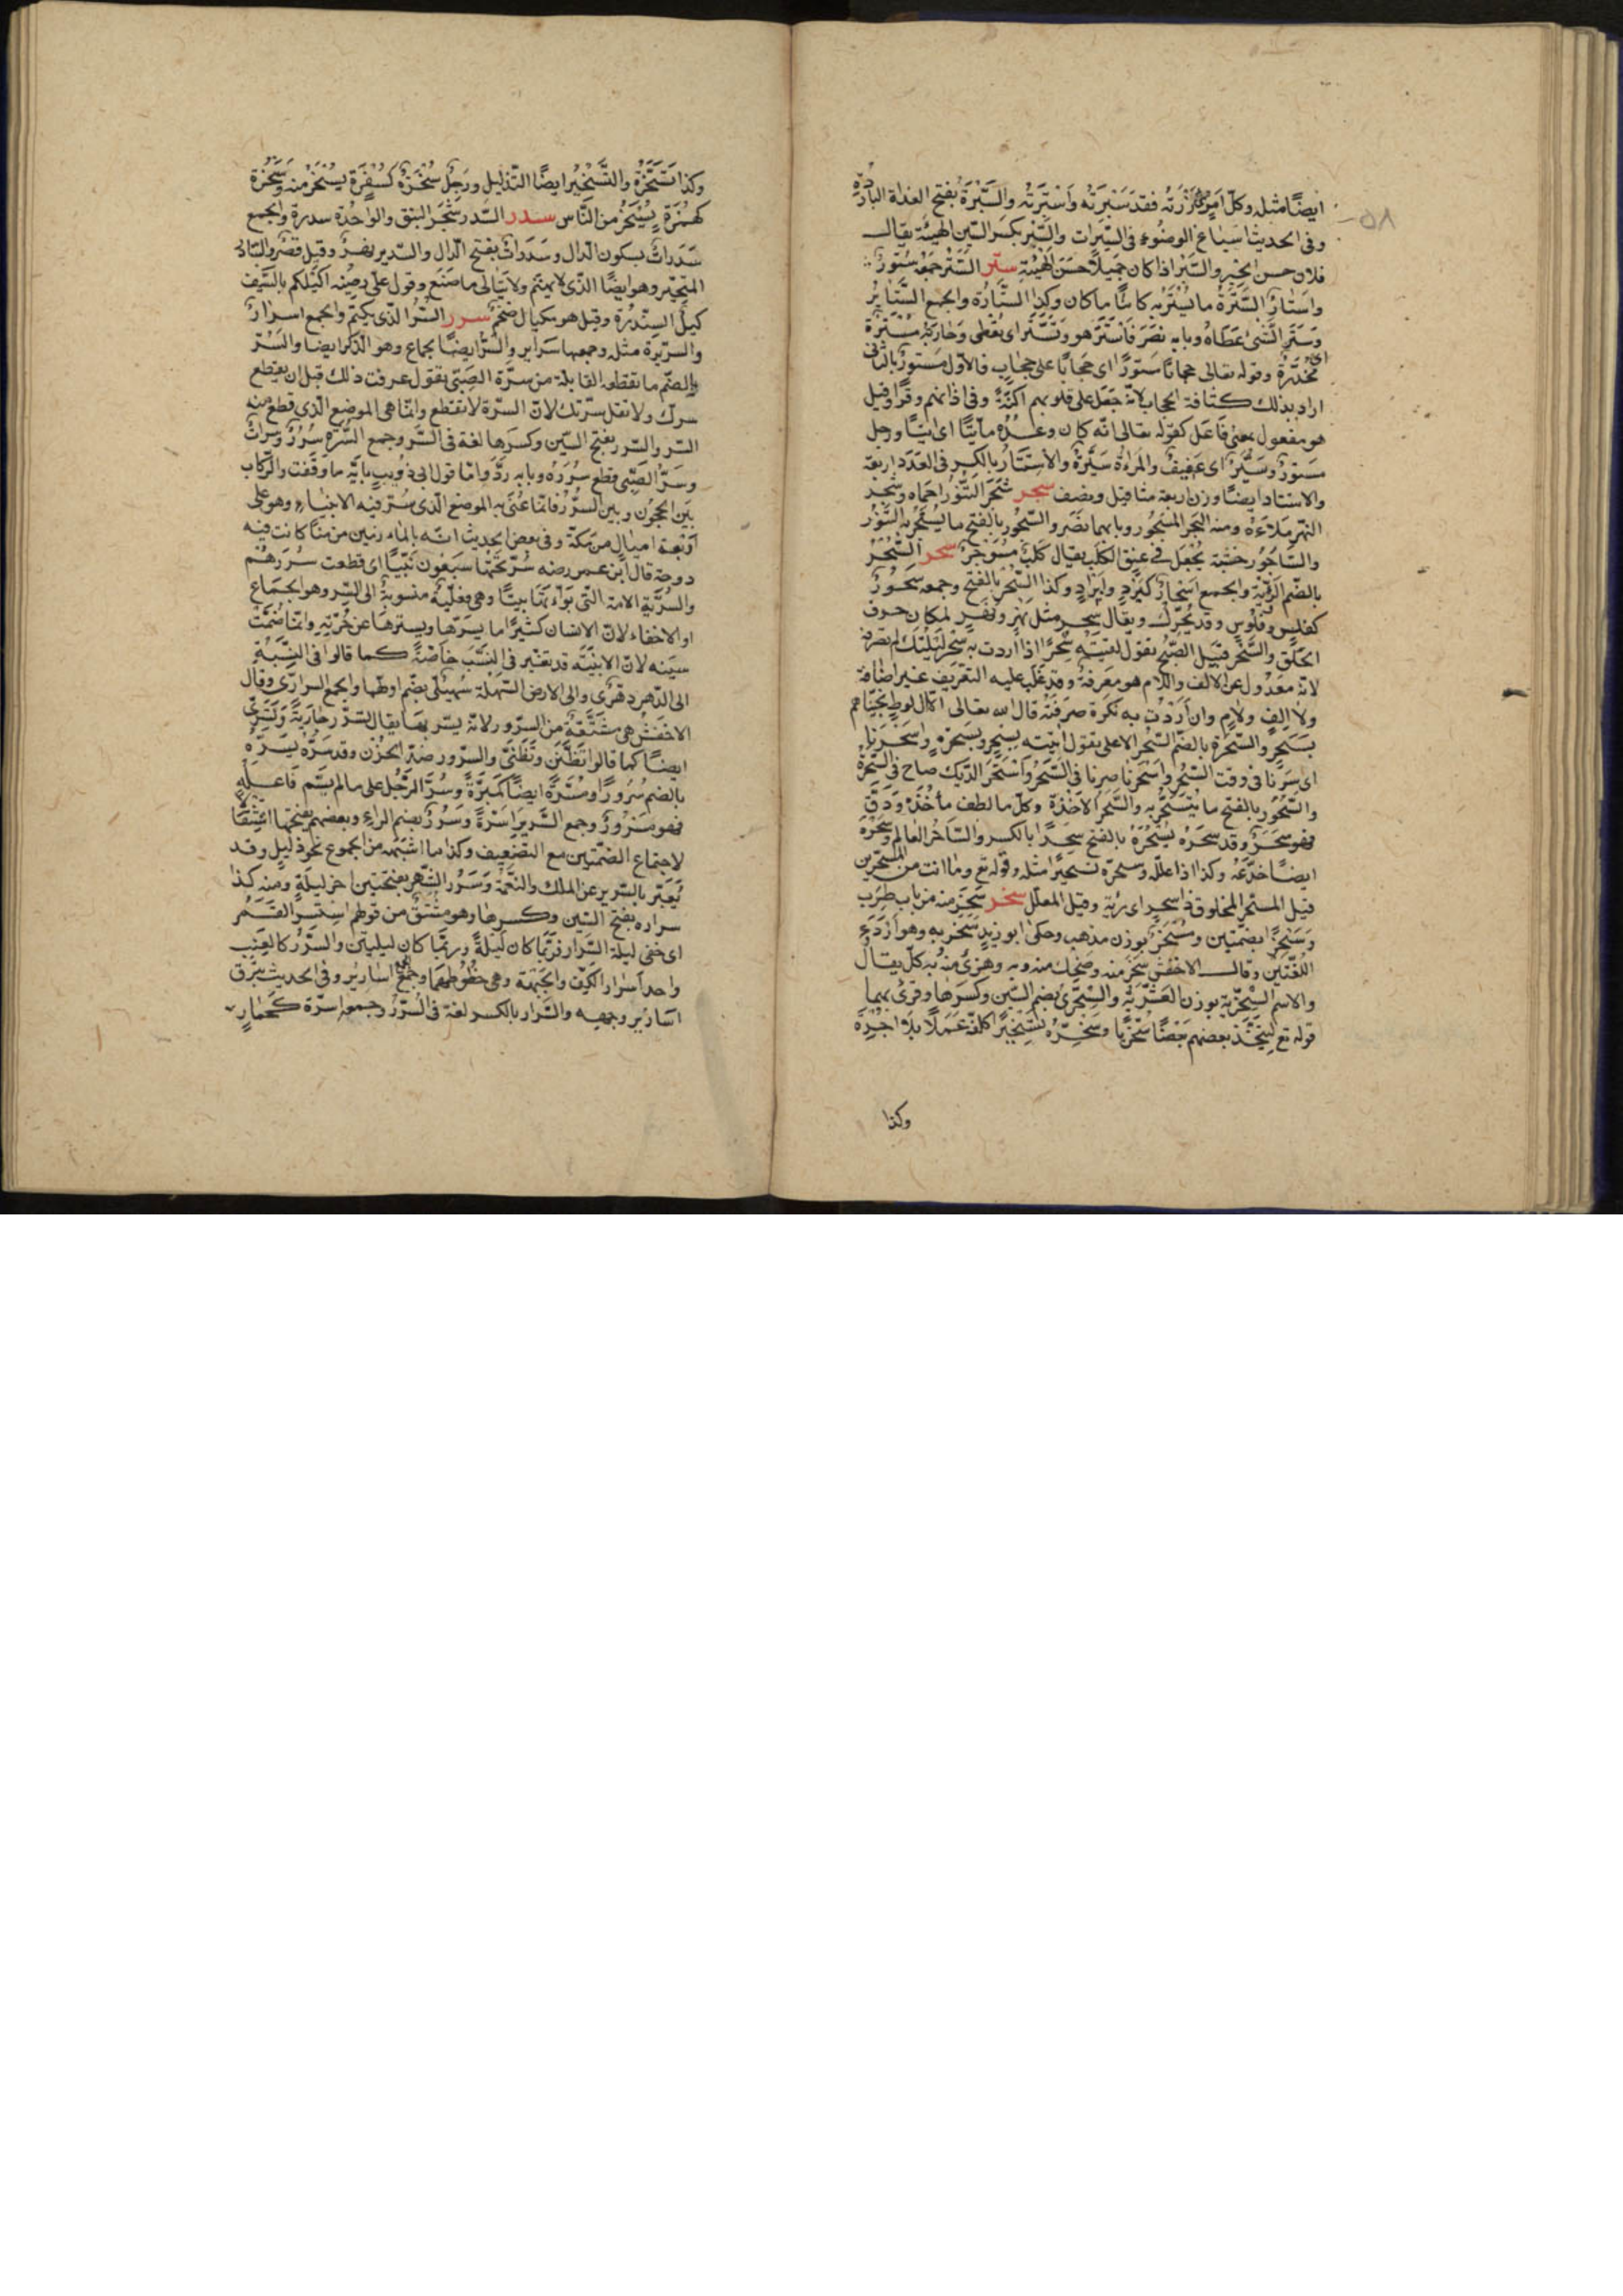 ٥٨
ايضًا مثله وكلّ امرٍ رُزْتَه فقد سَبَرْتَه وَاسْتَبَرْتَه والسَّبْرَةُ بفتح الغداة الباردة
وفى الحديث اسباغ الوضوء فى السَّبَرات والسِّبْر بكسر السّين الهيئة يقال
فلان حسن الحبر والسِّبْر اذا كان جميلًا حسن الهيئة ستر السّتر جمعه سُتُورٌ
واستارٌ السُّتْرَةُ ما يُسْتَرُ به كائنًا ما كان وكذا السّتارة والجمع السّتاير
وسَتَر الشئ غطاه وبابه نصر فاستتر هو وتَسَتَّر اى تغطّى وجارية مُسَتَّرة
اى مُخدّرة وقوله تعالى حجابًا مستورًا اى حجابًا على حجاب فالاوّل مستورٌ بالثانى
اراد بذلك كثافة الحجاب لانّه جعل على قلوبهم اكنّة وفى اذانهم وقرًا وقيل
هو مفعول بمعنى فاعل كقوله تعالى انّه كان وعده مأتيًّا اى اتيًا ورجل
مستورٌ وستيرٌ اى عفيفٌ والمراة ستيرة والاستار بالكسر فى العدد اربعة
والاستار ايضًا وزن اربعة مثاقيل ونصف سجر سَجَر التّنّور احماه وسجر
النّهر مَلَأَهُ ومنه البحر المسجور وبابهما نصر والسّجور بالفتح ما يُسْجَر به التّنّور
والسّاجور خشبة تجعل فى عنق الكلب يقال كلبٌ مُسَوْجَرٌ سحر السُّحْرُ
بالضّم الرّئة والجمع اسحارٌ كبُرْدٍ وابرادٍ وكذا السَّحْر بالفتح وجمعه سُحُورٌ
كفلس وفلوس وقد يُحرّك ويقال سَحَر مثل نَهْر ونَهَر لمكان حرف
الحلق والسَّحَر قبيل الصّبح تقول لقيته سَحَرًا اذا اردت به سحر ليلتك لم تصرفه
لانّه معدول عن الالف واللّام هو معرفة وقد غلب عليه التعريف غير اضافة
ولا الفٍ ولامٍ وان اردت به نكرة صرفته قال الله تعالى الّا آل لوط نجّيناهم
بسحرٍ والسُّحْرَة بالضّم السّحر الاعلى تقول اتيته بسحرٍ وبسُحْرة واسحرنا
اى سِرْنا فى وقت السّحر واسحرنا صرنا فى السّحر واستحر الدّيك صاح فى السّحر
والسَّحور بالفتح ما يُتَسَحَّر به والسِّحر الاخذة وكلّ ما لطف مأخذه ودقّ
فهو سِحرٌ وقد سحره يسحره بالفتح سِحرًا بالكسر والسّاحر العالم وسحره
ايضًا خدعه وكذا اذا علّله وسحّره تسحيرًا مثله وقوله تع وما انت من المسحّرين
قيل المسحّر المخلوق ذا سحر اى رئة وقيل المعلّل سخر سخر منه من باب طرب
وسُخُرًا بضمّتين ومَسْخَرًا بوزن مذهب وحكى ابو زيد سخر به وهو اردء
اللّغتين وقال الاخفش سخر منه وضحك منه وبه وهزئ منه به كلّ يقال
والاسم السّخريّة بوزن العشريّة والسُّخرى بضم السّين وكسرها وقرئ بهما
قوله تع ليتّخذ بعضهم بعضًا سخريًّا وسخّره تسخيرًا كلّفه عملًا بلا اجرة
وكذا
وكذا تسخّره والتّسخير ايضًا التّذليل ورجل سُخْرَةٌ كسُفْرَة يُسخر منه وسُخَرَة
كهُمَزَة يسخر من النّاس سدر السّدر شجر النبق والواحدة سدرة والجمع
سِدْراتٌ بسكون الدّال وسِدَراتٌ بفتح الدّال والسّدير نهرٌ وقيل قصرٌ والسّادر
المتحيّر وهو ايضًا الّذى لا يهتم ولا يبالى ما صنع وقول علىّ رضىنه اكيلكم بالسّيف
كيل السّندرة وقيل هو مكيال ضخم سرر السّرّ الّذى يكتم والجمع اسرارٌ
والسّريرة مثله وجمعها سرائر والسّرّ ايضًا الجماع وهو الذكر ايضا والسُّرّ
بالضّم ما تقطعه القابلة من سرّة الصّبى تقول عرفت ذلك قبل ان يقطع
سرّك ولا تقل سرّتك لانّ السرّة لا تقطع وانّما هى الموضع الّذى قطع منه
السّر والسّرر بفتح السّين وكسرها لغة فى السّر وجمع السُّرّة سُرَرٌ وسرّاتٌ
وسَرّ الصّبى قطع سُرَرَه وبابه ردّ وامّا قول ابى ذويب بآية ما وقفت والرّكاب
بين الحجون وبين السُّرَر فانّما عنى به الموضع الّذى سُرّ فيه الانبياء وهو على
اربعة اميال من مكّة وفى بعض الحديث انّه بالمأزمين من منًا كانت فيه
دوحة قال ابن عمر رضه سُرّ تحتها سبعون نبيًّا اى قطعت سُرَرهم
والسُّرّيّة الامة الّتى بوّأتها بيتًا وهى فعليّة منسوبة الى السّر وهو الجماع
او الاخفاء لانّ الانسان كثيرًا ما يسرّها ويسترها عن حُرّته وانّما ضُمّت
سينه لانّ الابنية قد تغيّر فى النّسب خاصّة كما قالوا فى النّسبة
الى الدّهر دهرى والى الارض السّهلة سُهلىّ بضم اولهما والجمع السرارىّ وقال
الاخفش هى مشتقّة من السّرور لانّه يسرّ بها يقال تسرّر جارية وتسرّى
ايضًا كما قالوا تظنّن وتظنّى والسّرور ضدّ الحزن وقد سرّه يسرّه
بالضم سُرورًا ومسرّة ايضًا كمبرّة وسُرّ الرّجل على ما لم يسمّ فاعله
فهو مسرورٌ وجمع السّرير اسرّة وسُرُرٌ بضم الراء وبعضهم يفتحها استثقالًا
لاجتماع الضمّتين مع التضعيف وكذا ما اشبهه من الجموع نحو ذليل وقد
يعبّر بالسّرير عن الملك والنّعمة وسَرَرُ الشّهر بفتحتين اخر ليلة ومنه كذا
سراره بفتح السّين وكسرها وهو مشتقٌّ من قولهم استسرّ القمر
اى خفى ليلة السّرار فربّما كان ليلة وربّما كان ليلتين والسِّرَرُ كالعنب
واحد اسرار الكفّ والجبهة وهى خطوطهما وجمع الجمع اسارير وفى الحديث تبرق
اسارير وجهه والسّرار بالكسر لغة فى السّرر وجمعه اسرّة كحمارٍ